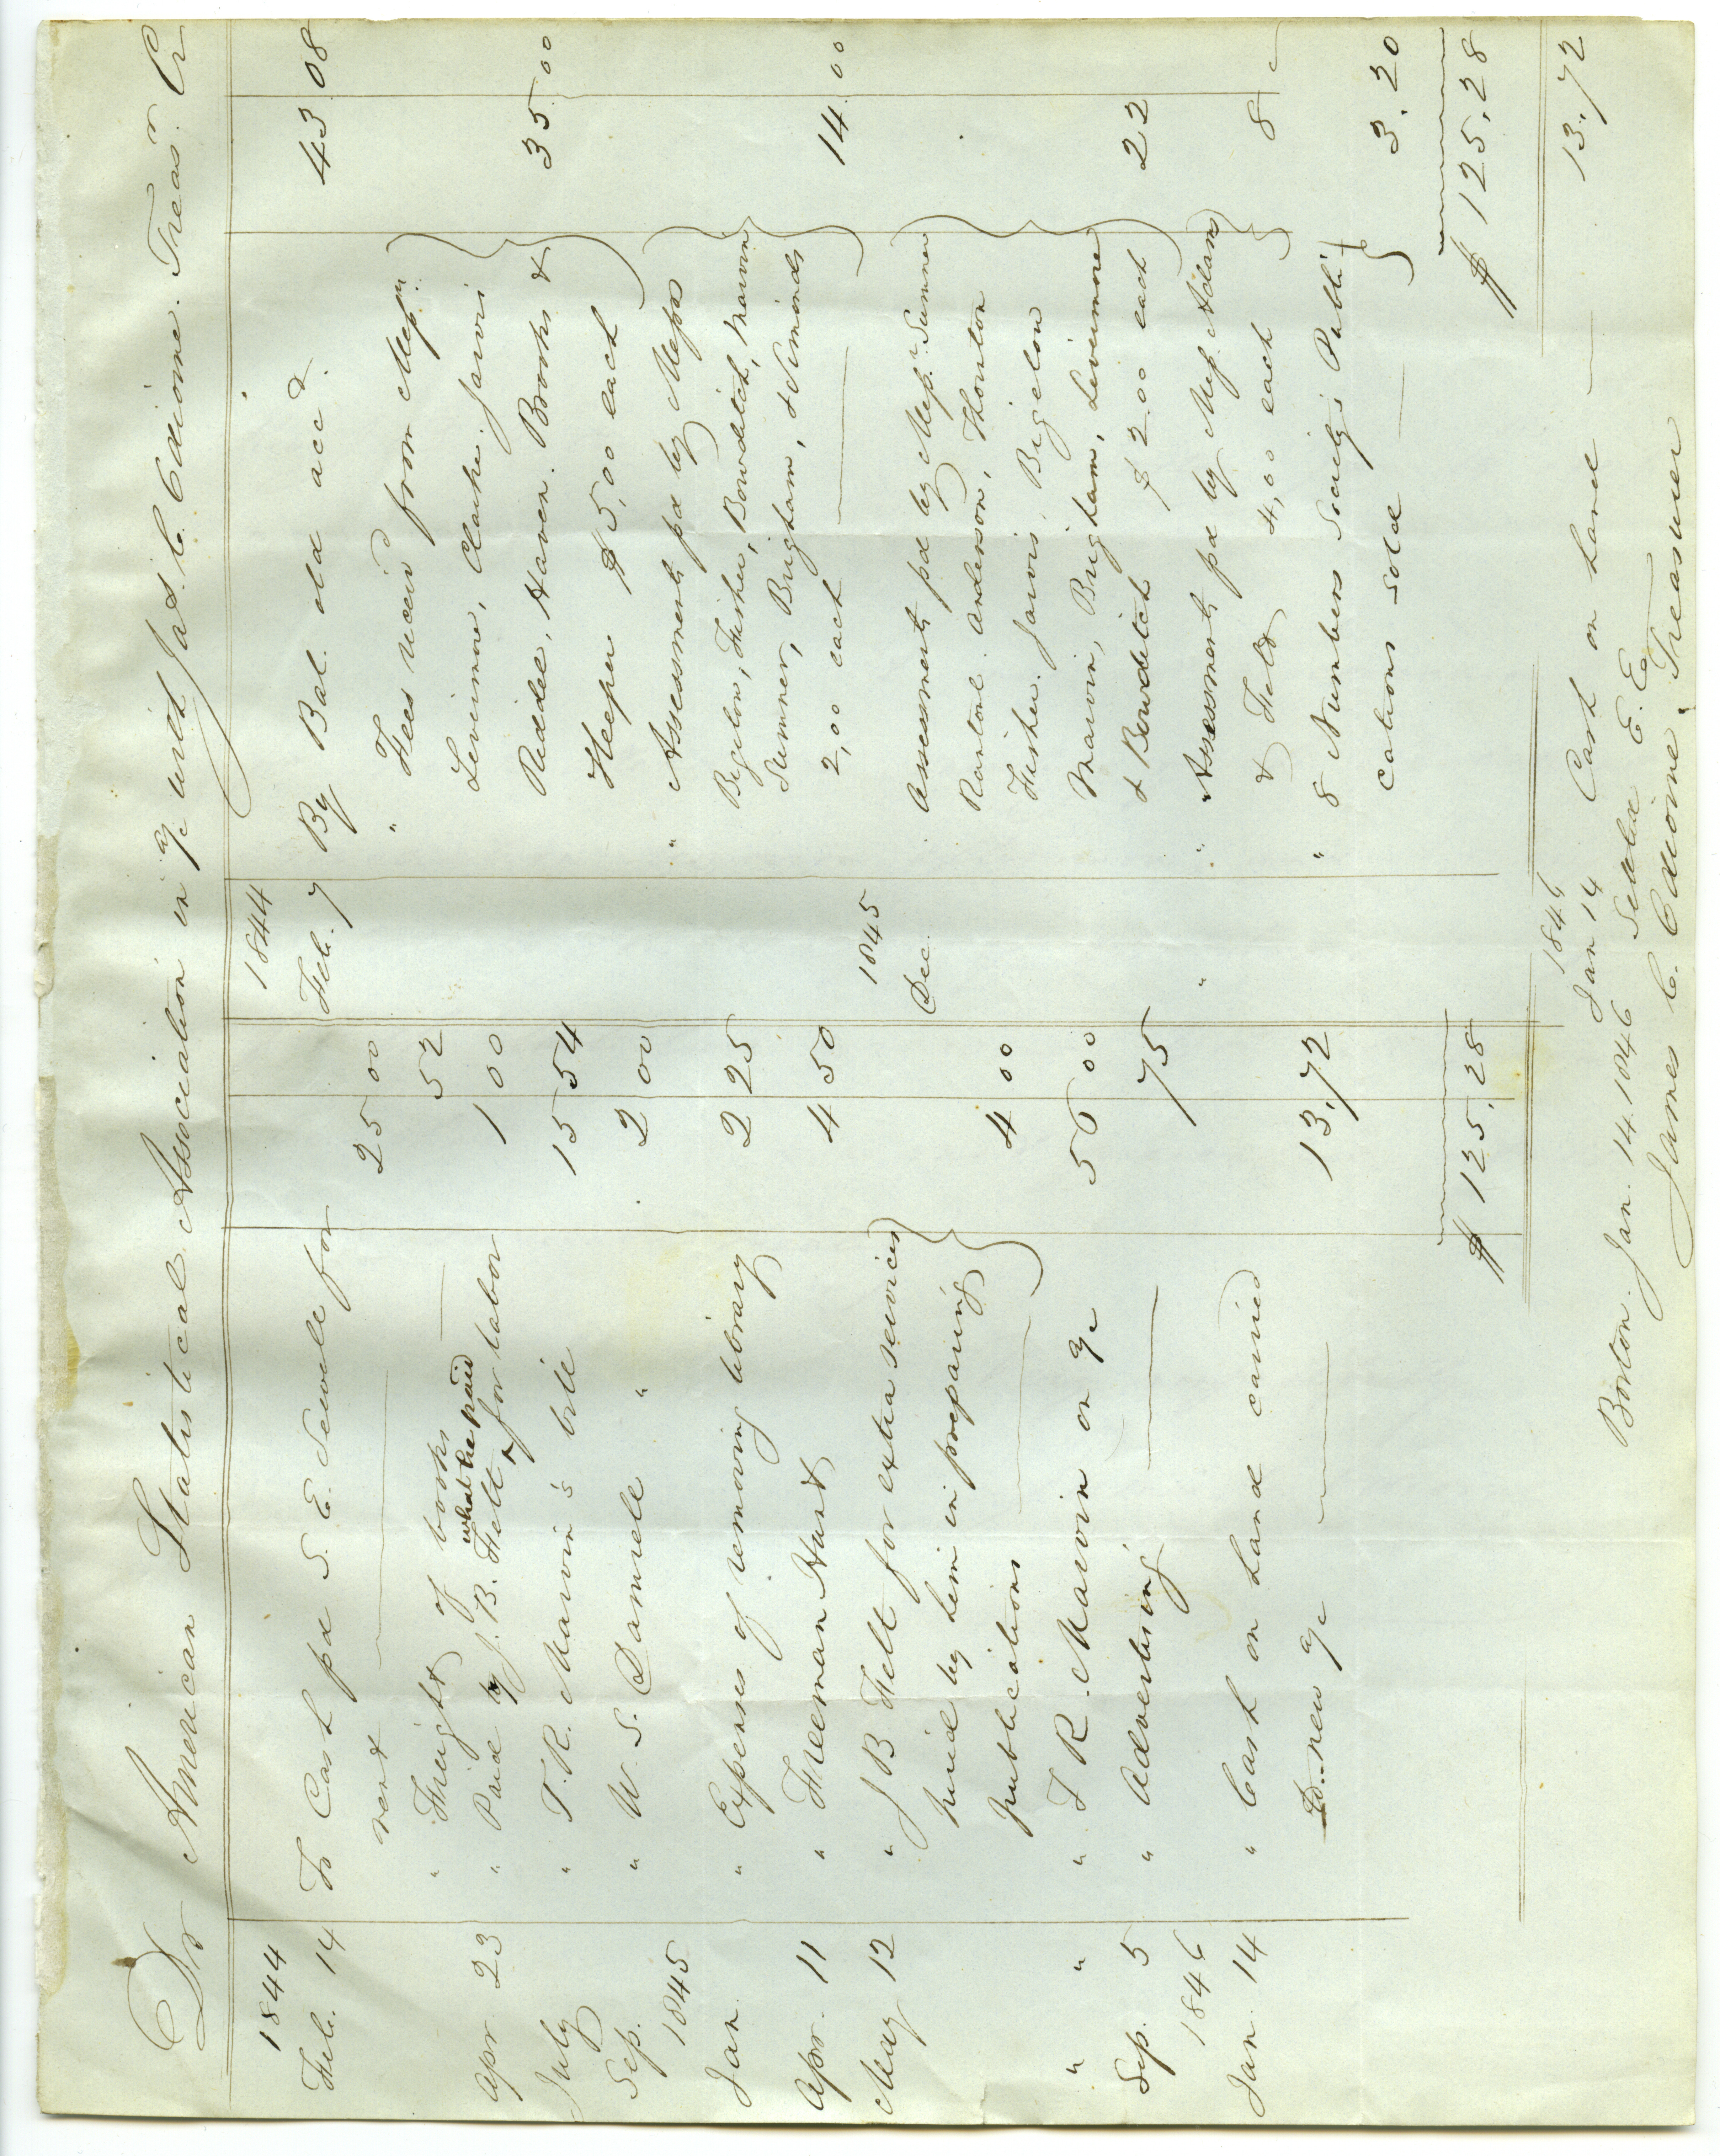 Dr American Statistical Association in a/c with Jas. C. Odiorne. Treasr. Cr
1844
Feb. 14 To Cash pd S. E. Sewall for
rent 25 00
" Freight of books 52
what he paid
Apr. 23 " Paid J. B. Felt ^ for labor 1 00
July " T. R. Marvin's bill 15 54
Sep. " W. S. Damrell " 2 00
1845
Jan. " Expenses of removing library 2 25
Apr. 11 " Freeman Hunt 4 50
May 12 " J B Felt for extra services
hired by him in preparing
publications 4 00
" " " T R. Marvin on a/c 56 00
Sep. 5 " Advertising 75
1846
Jan. 14 " Cash on hand carried
to new a/c 13.72
$ 125.28
1844
Feb. 7 By Bal. old acct. 43 08
" Fees receivd from Messrs.
Livermore, Clarke. Jarvis
Riddel, Haven. Brooks &
Heper $ 5,00 each 35 00
" Assessments pd by Messrs
Bigelow, Fisher, Bowditch, Marvin
Sumner, Brigham, & Simonds
2,00 each 14 00
1845
Dec. Assessments pd by Messrs. Sumner
Rantoul. Anderson, Thornton
Fisher. Jarvis, Bigelow
Marvin, Brigham, Livermore
& Bowditch $ 2.00 each 22
" " Assessments pd by Mess. Adams
& Felt 4,00 each 8
" 8 Numbers Society's Publi-
cations sold 3.20
$ 125.28
1846
Jan 14 Cash on hand 13.72
Boston. Jan. 14. 1846 E. E.
James C. Odiorne. Treasurer